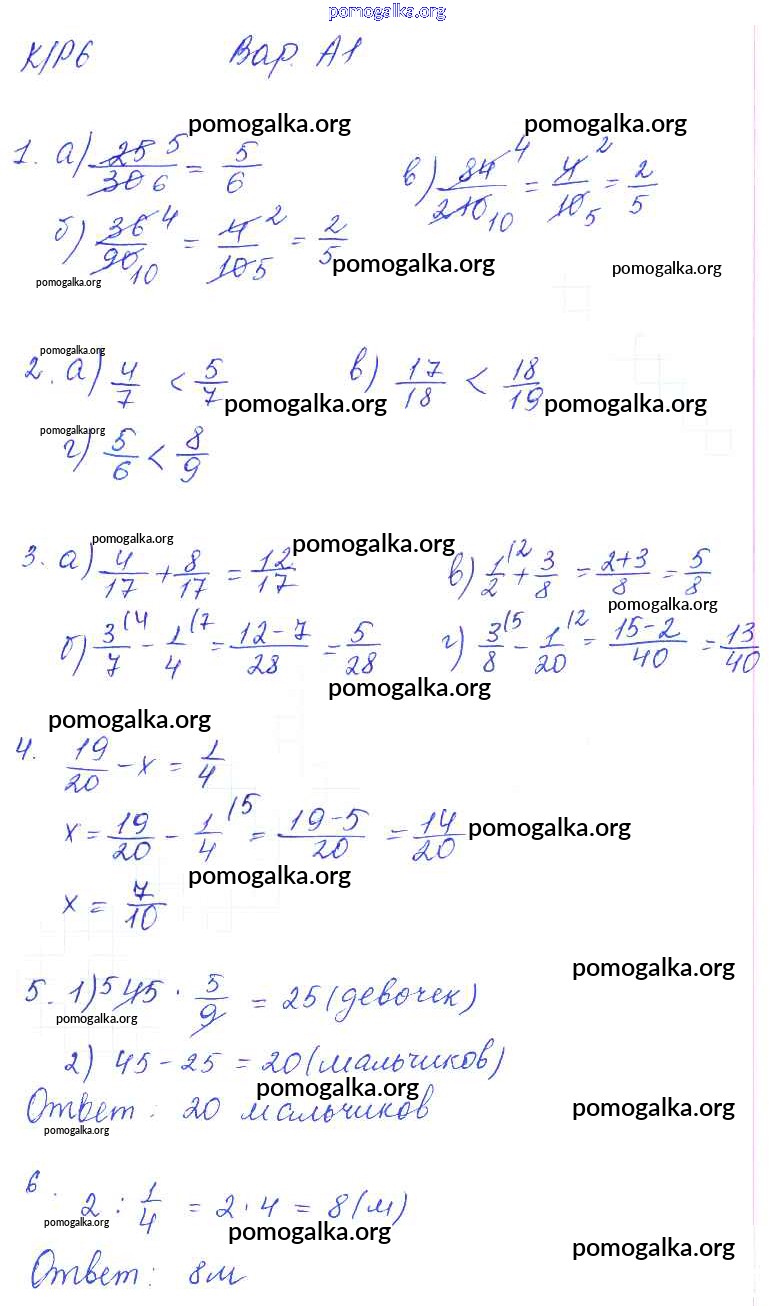 pomogalka.org
К/Р6 Вар. А1
pomogalka.org pomogalka.org
1. а) 25/30 5/6 = 5/6 в) 84/210 4/10 = 4/10 2/5 = 2/5
б) 36/90 4/10 = 4/10 2/5 = 2/5
pomogalka.org pomogalka.org
pomogalka.org
pomogalka.org
2. а) 4/7 < 5/7 в) 17/18 < 18/19
pomogalka.org pomogalka.org
pomogalka.org
г) 5/6 < 8/9
pomogalka.org pomogalka.org
3. а) 4/17 + 8/17 = 12/17 в) 1/2 (2 + 3/8 = 2+3/8 = 5/8
pomogalka.org
б) 3/7 (4 - 1/4 (7 = 12-7/28 = 5/28 г) 3/8 (5 - 1/20 (2 = 15-2/40 = 13/40
pomogalka.org
pomogalka.org
4. 19/20 - х = 1/4
х = 19/20 - 1/4 (5 = 19-5/20 = 14/20
pomogalka.org
pomogalka.org
х = 7/10
pomogalka.org
5. 1) 5 45 · 5/9 = 25 (девочек)
pomogalka.org
2) 45 - 25 = 20 (мальчиков)
pomogalka.org
Ответ: 20 мальчиков
pomogalka.org
pomogalka.org
6. 2 : 1/4 = 2 · 4 = 8 (м)
pomogalka.org pomogalka.org
pomogalka.org
Ответ: 8м